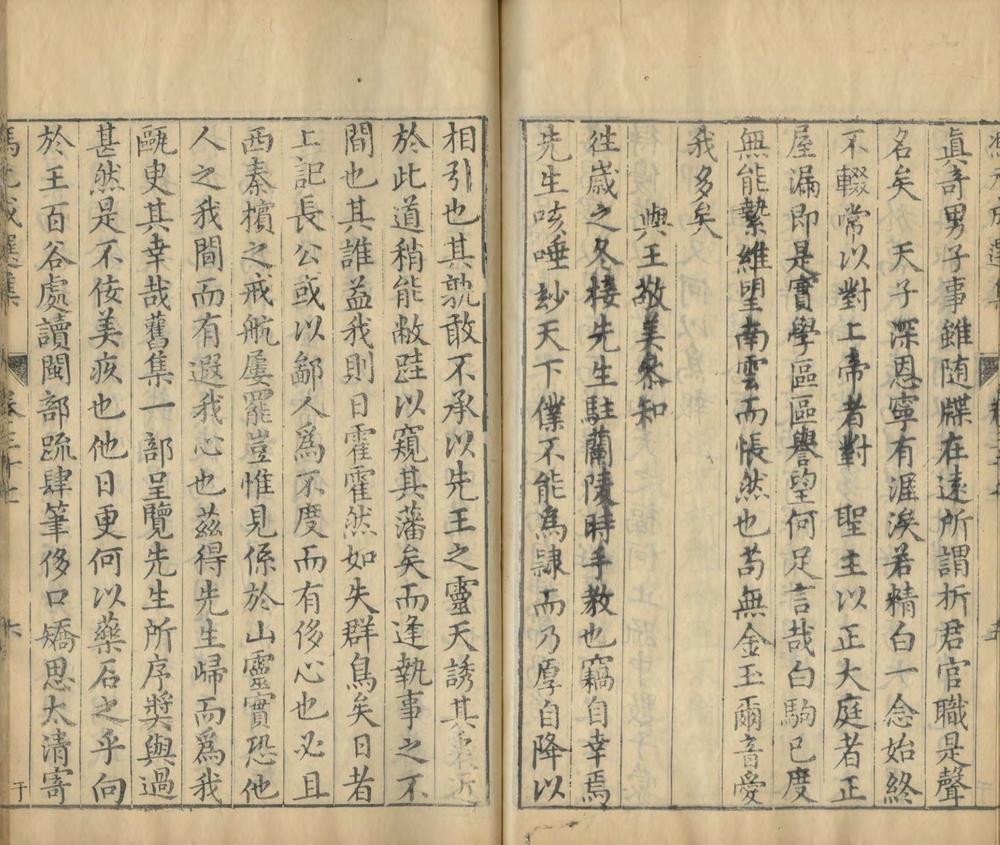 眞奇男子事雖随牒在逺所謂折君官職是聲
名矣　天子　深恩寧有涯涘若精白一念始終
不輟常以對上帝者對　聖主以正大庭者正
屋漏即是實學區區譽望何足言哉白駒已度
無能縶維望南雲而悵然也茍無金玉爾音愛
我多矣
與王敬美叅知
徃歲之冬接先生駐蘭陵時手教也竊自幸焉
先生咳唾玅天下僕不能為隷而乃厚自降以
相引也其孰敢不承以先王之靈天誘其衷
於此道稍能敝跬以窺其藩矣而逢執事之不
間也其誰益我則日霍霍然如失群鳥矣日者
上記長公或以鄙人爲不度而有侈心也必且
西秦擯之戒航屢罷豈惟見係於山靈實恐他
人之我間而有遐我心也茲得先生歸而爲我
甌㕝其幸哉舊集一部呈覽先生所序奬與過
甚然是不佞美疢也他日更何以藥石之乎向
於王百谷處讀閩部䟽肆筆侈口矯思太清寄
馮元成選集　卷三十七　六